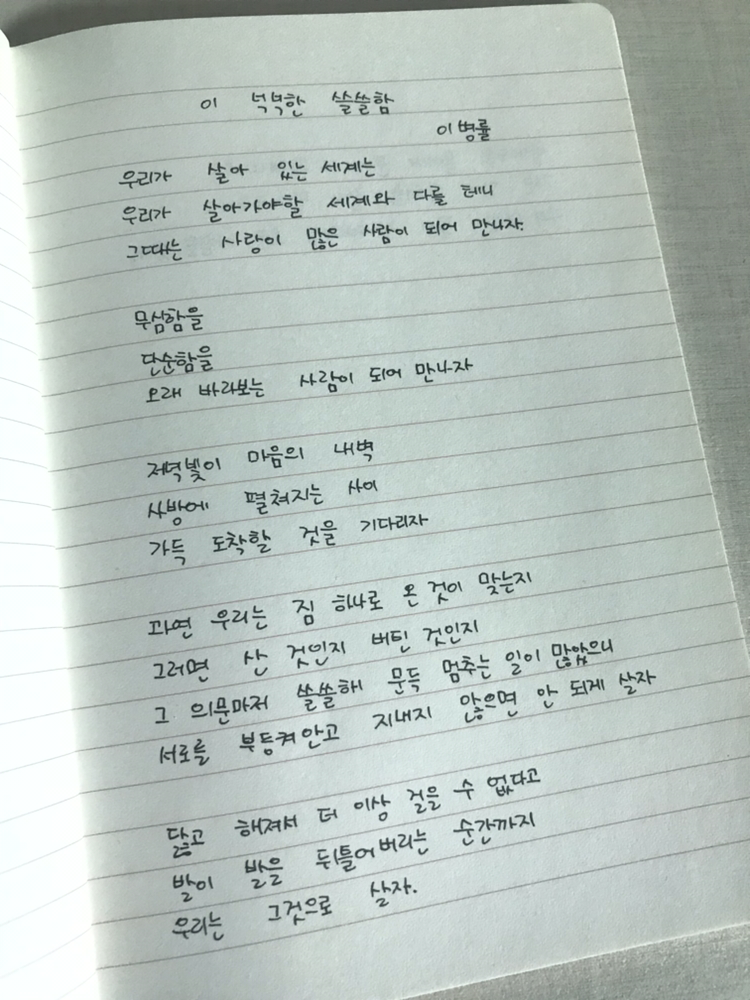 이 넉넉한 쓸쓸함
이병률
우리가 살아 있는 세계는
우리가 살아가야할 세계와 다를 테니
그때는 사랑이 많은 사람이 되어 만나자.
무심함을
단순함을
오래 바라보는 사람이 되어 만나자
저녁빛이 마음의 내벽
사방에 펼쳐지는 사이
가득 도착할 것을 기다리자
과연 우리는 짐 하나로 온 것이 맞는지
그러면 산 것인지 버틴 것인지
그 의문마저 쓸쓸해 문득 멈추는 일이 많았으니
서로를 부둥켜안고 지내지 않으면 안 되게 살자
닳고 해져서 더 이상 걸을 수 없다고
발이 발을 뒤틀어버리는 순간까지
우리는 그것으로 살자.